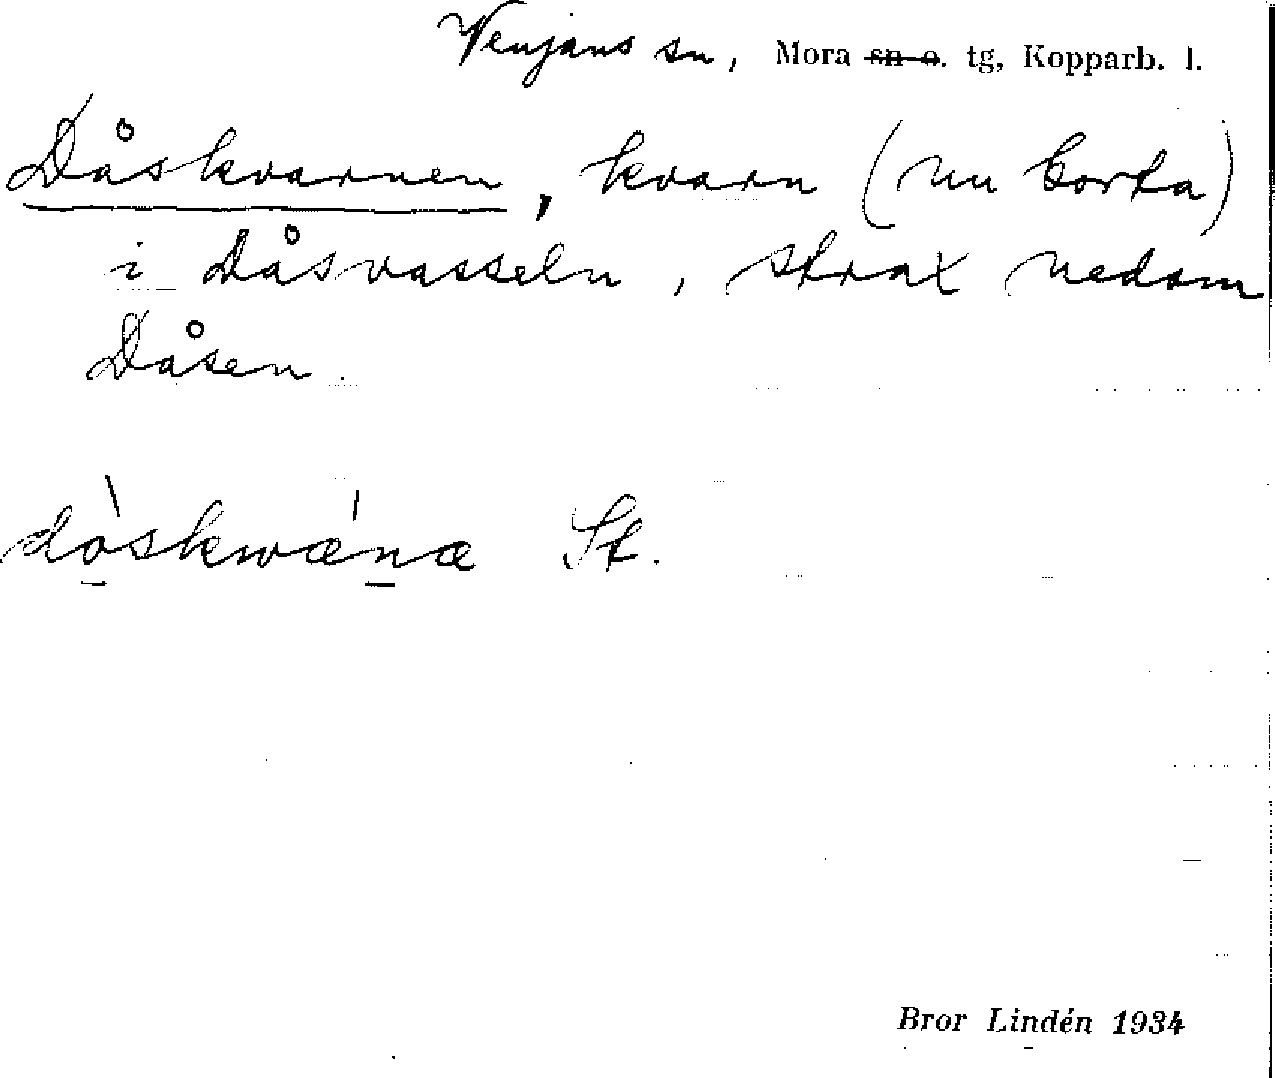 Venjans sn, Mora ~~sn o.~~ tg, Kopparb. l.
Dåskvarnen, kvarn (nu borta)
i Dåsvasseln, strax nedom
Dåsen.
dò̠skwæ̍n̠æ St.
Bror Lindén 1934